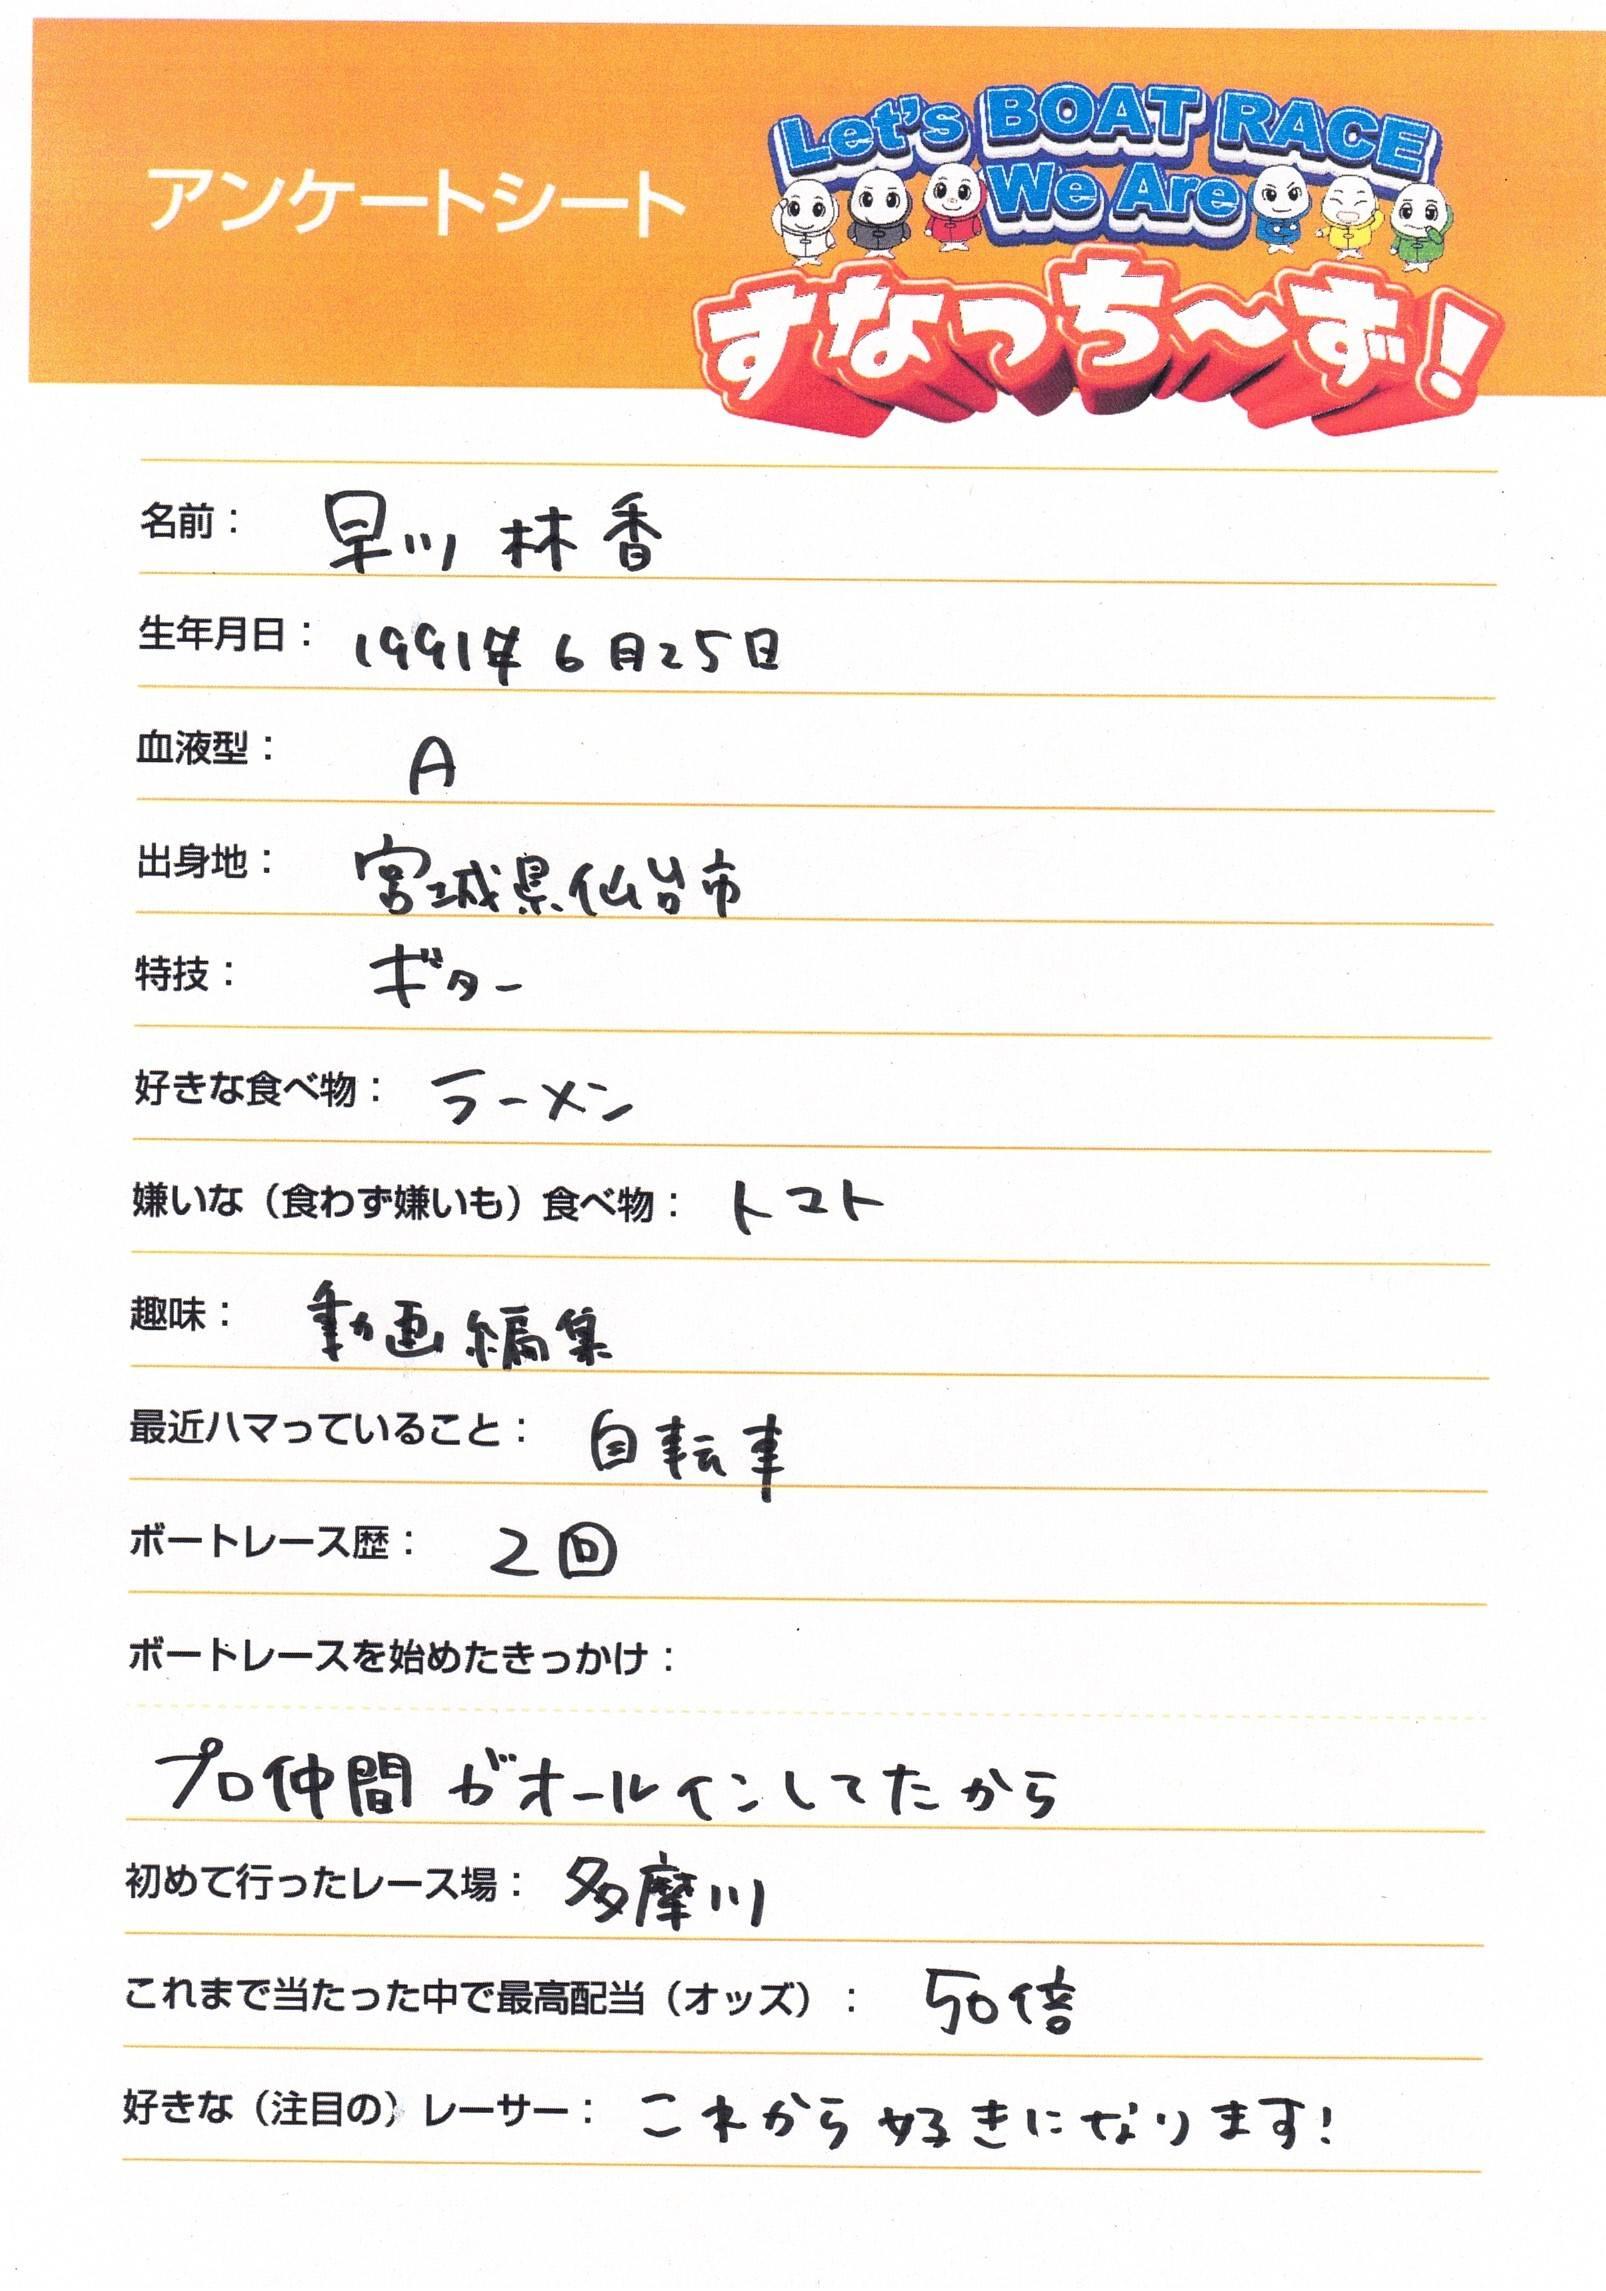 アンケートシート
Let's BOAT RACE
We Are
すなっち～ず!
名前： 早川 林香
生年月日： 1991年6月25日
血液型： A
出身地： 宮城県仙台市
特技： ギター
好きな食べ物： ラーメン
嫌いな（食わず嫌いも）食べ物： トマト
趣味： 動画編集
最近ハマっていること： 自転車
ボートレース歴： 2回
ボートレースを始めたきっかけ：
プロ仲間がオールインしてたから
初めて行ったレース場： 多摩川
これまで当たった中で最高配当（オッズ）： 50倍
好きな（注目の）レーサー： これから好きになります!